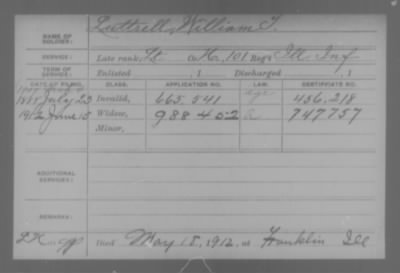 Luttrell, William T.
NAME OF SOLDIER:
SERVICE: Late rank, Lt Co. H, 101 Reg't Ill Inf
TERM OF SERVICE: Enlisted , 1 Discharged , 1
DATE OF FILING. CLASS. APPLICATION NO. LAW. CERTIFICATE NO.
1888 July 23 Invalid, 665.541 456.218
1912 June 15 Widow, 988452 747757
Minor,
ADDITIONAL SERVICES:
REMARKS:
Died May 18, 1912, at Franklin Ill